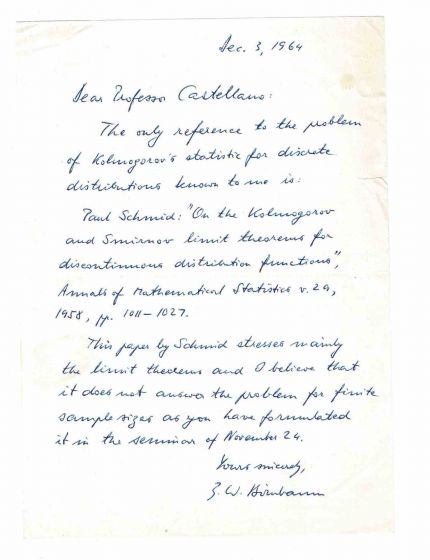 Dec. 3, 1964
Dear Professor Castellano:
The only reference to the problem
of Kolmogorov's statistic for discrete
distributions known to me is:
Paul Schmid: "On the Kolmogorov
and Smirnov limit theorems for
discontinuous distribution functions",
Annals of Mathematical Statistics v. 29,
1958, pp. 1011-1027.
This paper by Schmid stresses mainly
the limit theorems and I believe that
it does not answer the problem for finite
sample sizes as you have formulated
it in the seminar of November 24.
Yours sincerely,
Z. W. Birnbaum